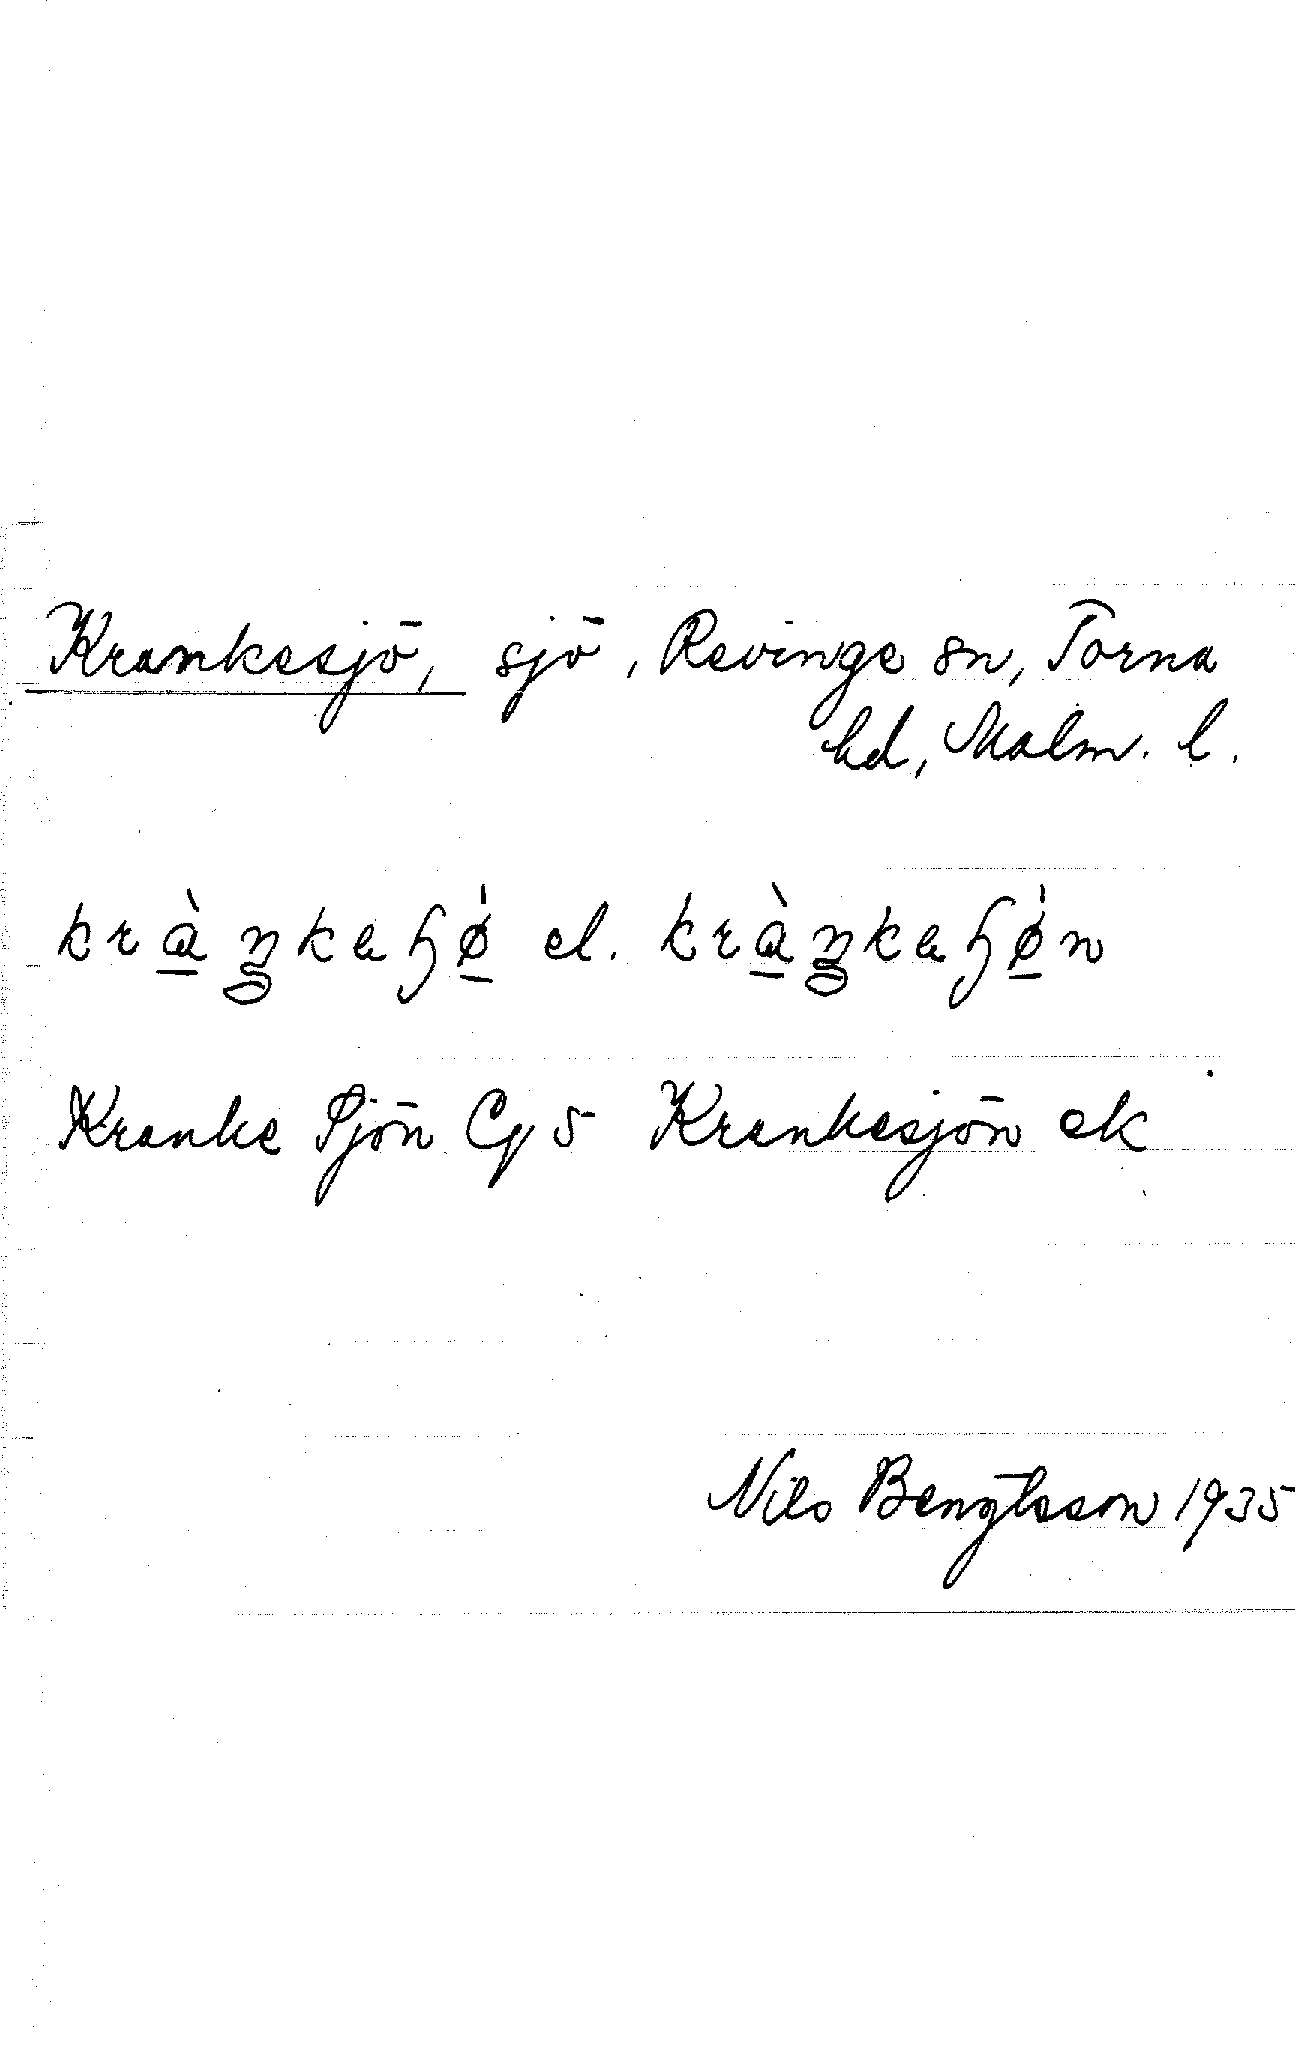 Krankesjö, sjö, Revinge sn, Torna
hd, Malm. l.
kràŋkaɧø̇ el. kràŋkaɧø̇n
Kranke Sjön Cg 5 Krankesjön ek
Nils Bengtsson 1935